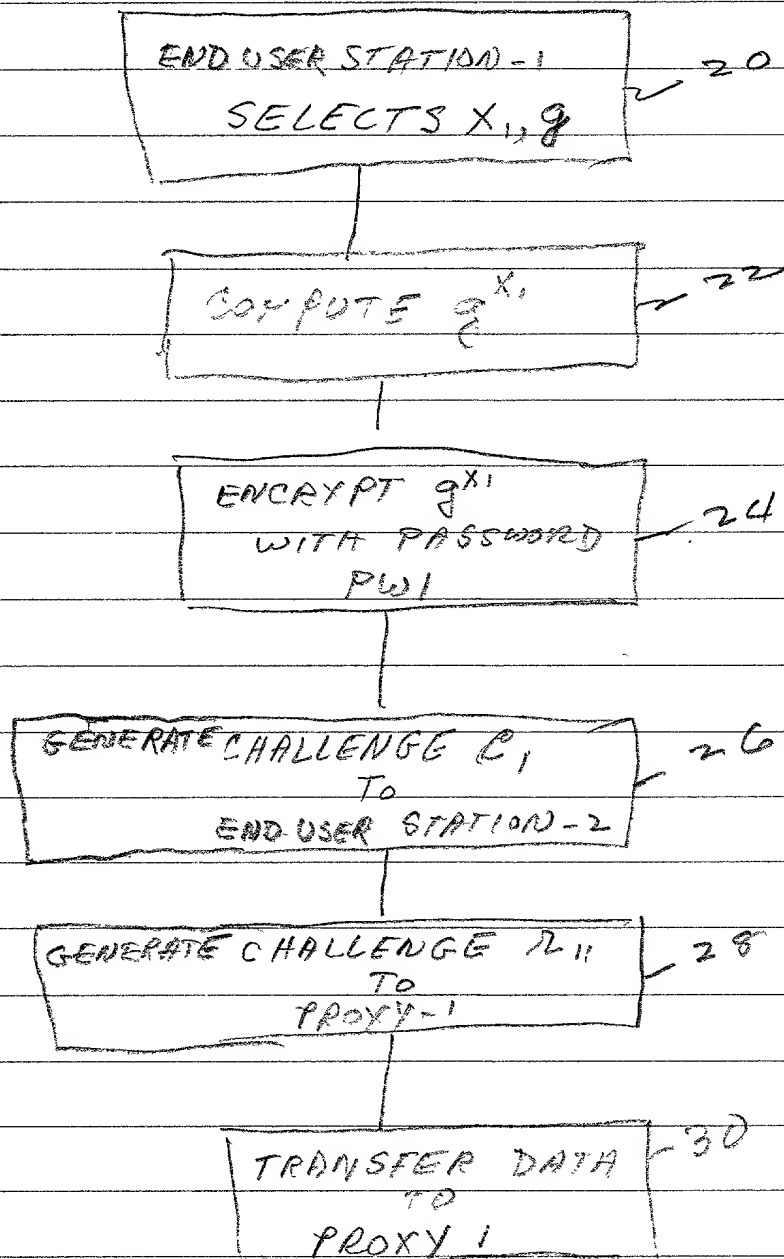 END USER STATION-1
SELECTS X₁, g
20
COMPUTE g^X₁
22
ENCRYPT g^X₁
WITH PASSWORD
PW1
24
GENERATE CHALLENGE C₁
TO
END USER STATION-2
26
GENERATE CHALLENGE r₁₁
TO
PROXY-1
28
TRANSFER DATA
TO
PROXY 1
30